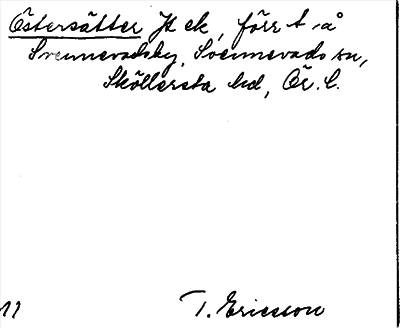 Östersätter Jt ek, förr t. å
Svennevadsby, Svennevads sn,
Sköllersta hd, Ör. l.
11 T. Ericsson